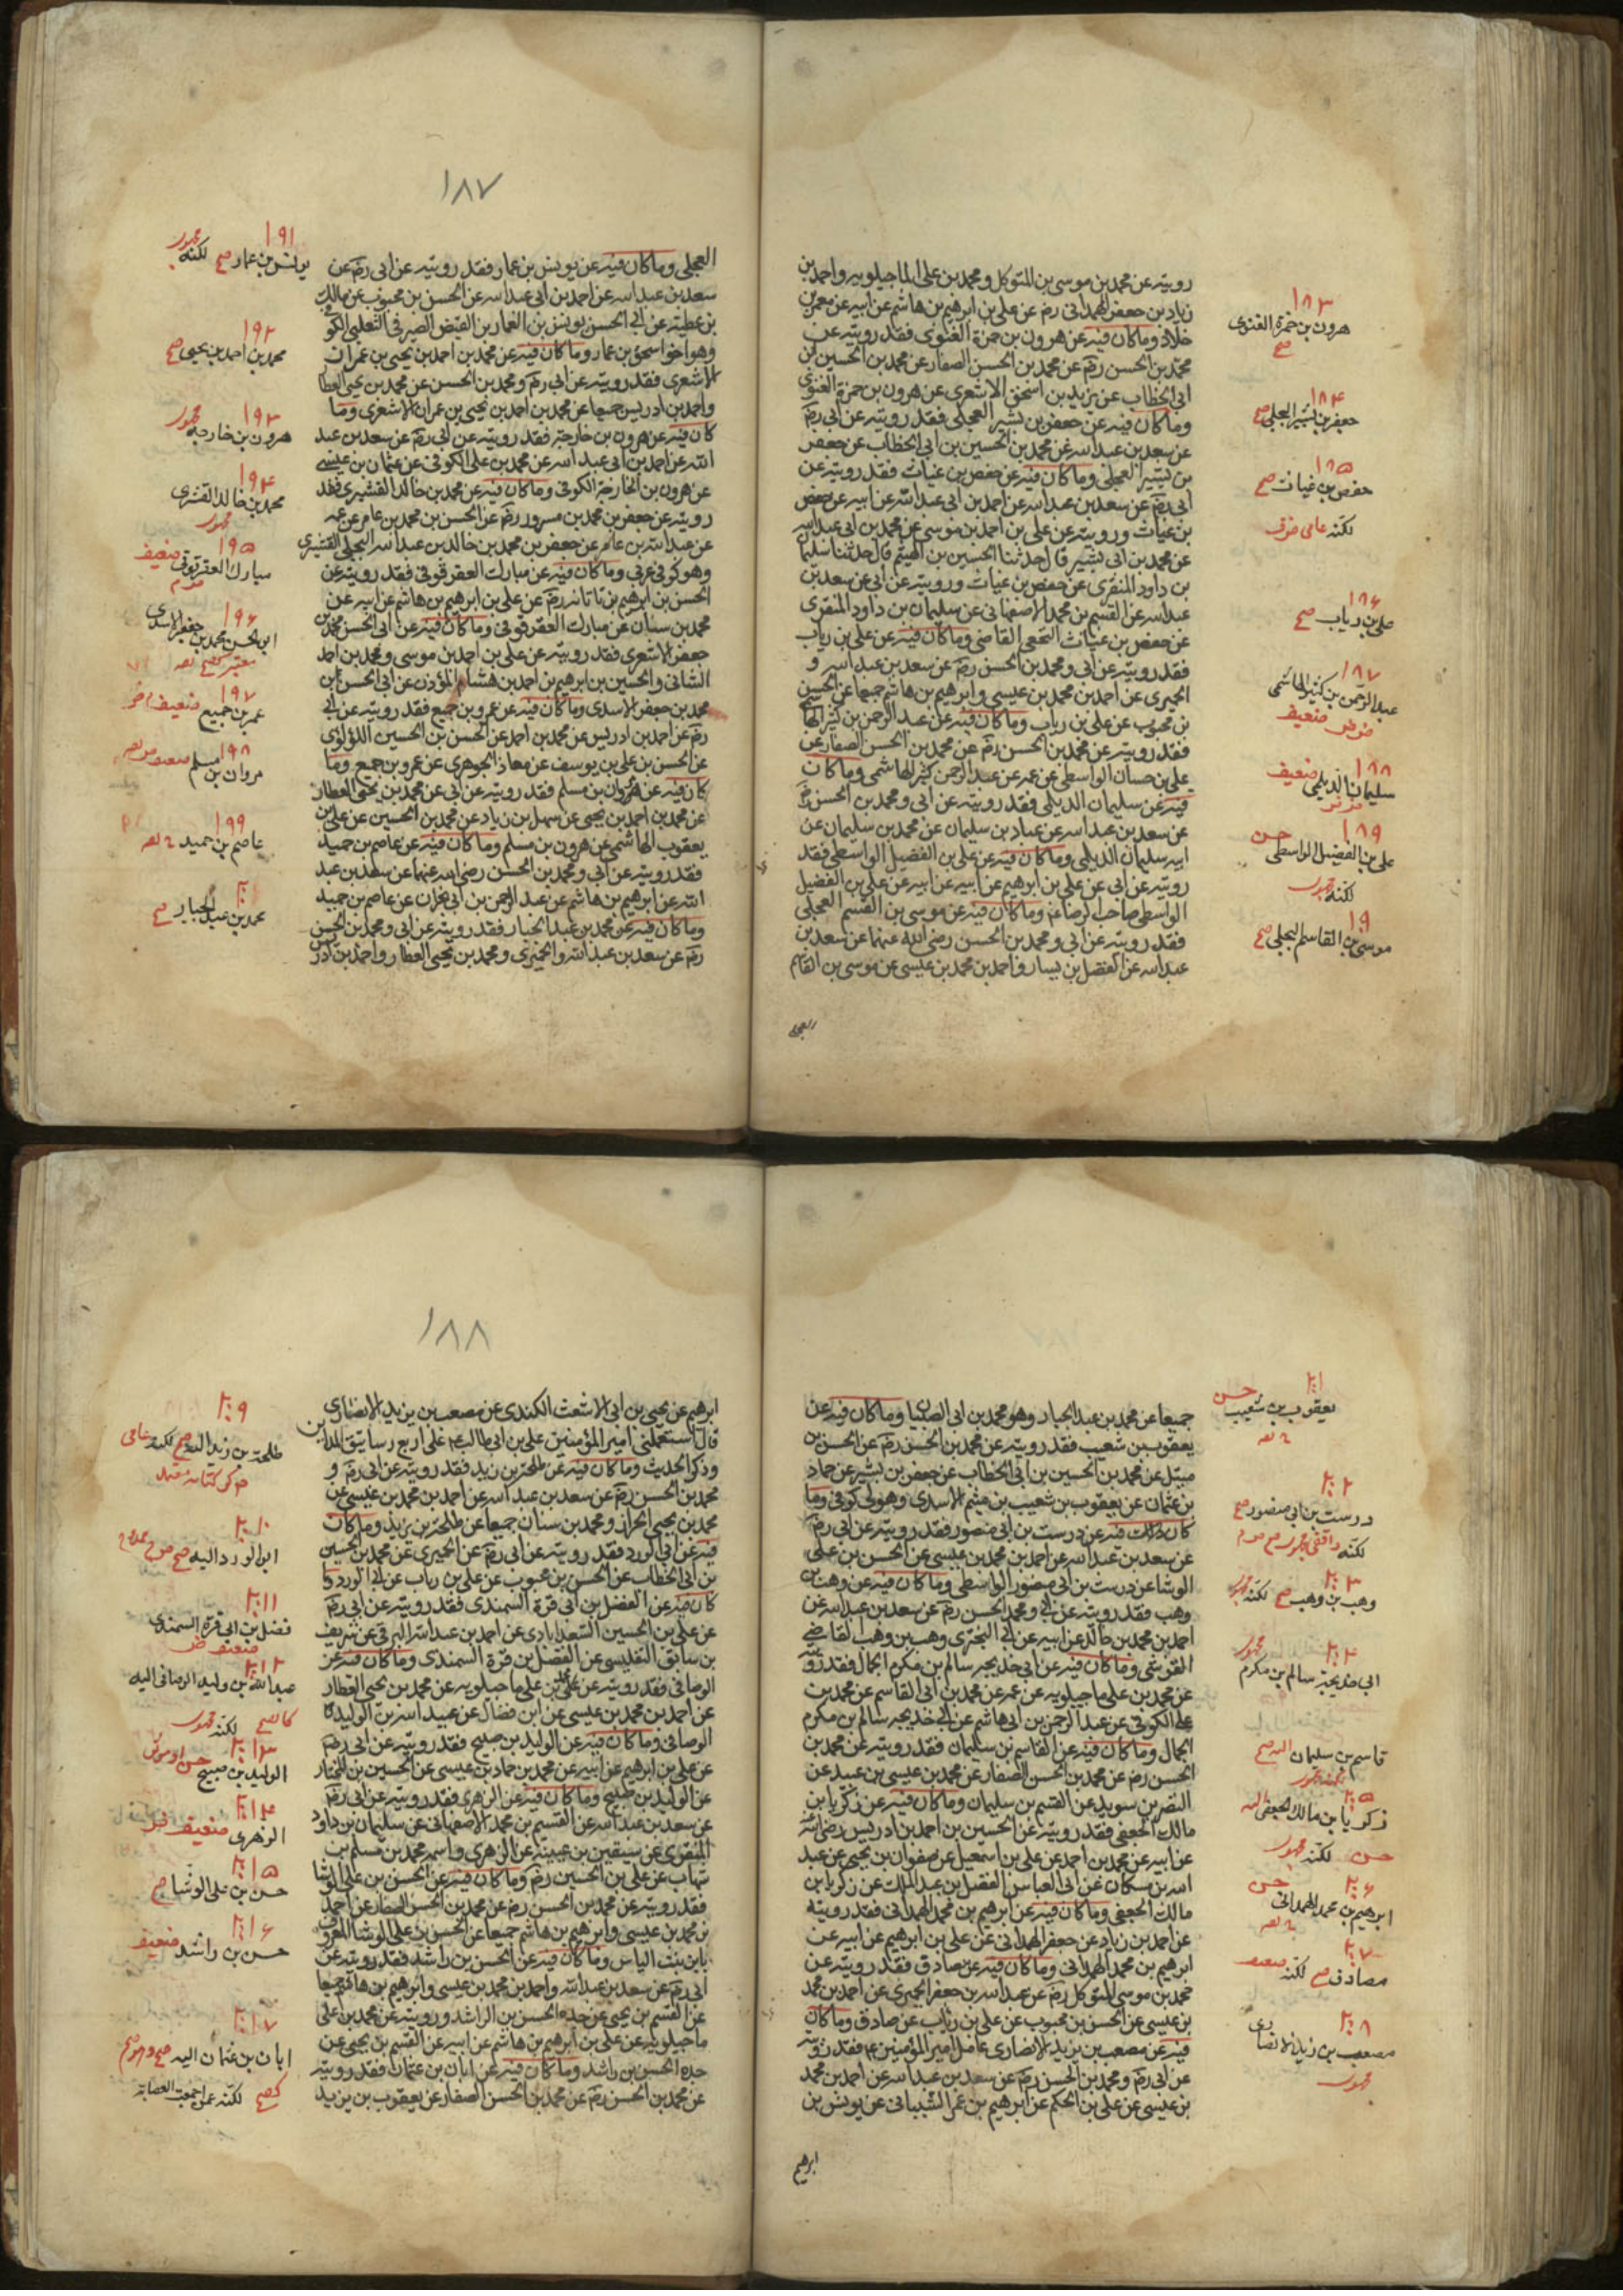 رويته عن محمد بن موسى بن المتوكل ومحمد بن على الماجيلويه واحمد بن
زياد بن جعفر الهمدانى رضه عن على بن ابرهيم بن هاشم عن ابيه عن معمر بن
خلاد وما كان فيه عن هرون بن حمزة الغنوى فقد رويته عن
محمد بن الحسن رضه عن محمد بن الحسن الصفار عن محمد بن الحسين بن
ابى الخطاب عن يزيد بن اسحق الاشعرى عن هرون بن حمزة الغنوى
وما كان فيه عن جعفر بن بشير العجلى فقد رويته عن ابى رضه
عن سعد بن عبد الله عن محمد بن الحسين بن ابى الخطاب عن جعفر
بن بشير العجلى وما كان فيه عن حفص بن غياث فقد رويته عن
ابى رضه عن سعد بن عبد الله عن احمد بن ابى عبد الله عن ابيه عن حفص
بن غياث ورويته عن على بن احمد بن موسى عن محمد بن ابى عبد الله
عن محمد بن ابى بشير قال حدثنا الحسين بن الهيثم قال حدثنا سليما
بن داود المنقرى عن حفص بن غياث ورويته عن ابى عن سعد بن
عبد الله عن القسم بن محمد الاصفهانى عن سليمان بن داود المنقرى
عن حفص بن غياث النخعى القاضى وما كان فيه عن على بن رياب
فقد رويته عن ابى ومحمد بن الحسن رضه عن سعد بن عبد الله و
الحميرى عن احمد بن محمد بن عيسى وابرهيم بن هاشم جميعا عن الحسن
بن محبوب عن على بن رياب وما كان فيه عن عبد الرحمن بن كثير الها
فقد رويته عن محمد بن الحسن رضه عن محمد بن الحسن الصفار عن
على بن حسان الواسطى عن عمه عن عبد الرحمن كثير الهاشمى وما كان
فيه عن سليمان الديلمى فقد رويته عن ابى ومحمد بن الحسن رضه
عن سعد بن عبد الله عن عباد بن سليمان عن محمد بن سليمان عن
ابيه سليمان الديلمى وما كان فيه عن على بن الفضيل الواسطى فقد
رويته عن ابى عن على بن ابرهيم عن ابيه عن ابيه عن على بن الفضيل
الواسطى صاحب الرضا ع وما كان فيه عن موسى بن القسم العجلى
فقد رويته عن ابى ومحمد بن الحسن رضى الله عنهما عن سعد بن
عبد الله عن الفضل بن يسار واحمد بن محمد بن عيسى عن موسى بن القاسم
العجلى
١٨٣
هرون بن حمزة الغنوى
صح
١٨٤
جعفر بن بشير البجلى صح
١٨٥
حفص بن غياث صح
لكنه عامى
١٨٦
على بن رياب صح
١٨٧
عبد الرحمن بن كثير الهاشمى
ضعيف
١٨٨
سليمان الديلمى ضعيف
١٨٩
على بن الفضيل الواسطى حسن
لكنه مجهول
١٩٠
موسى بن القاسم البجلى صح
١٨٧
العجلى وما كان فيه عن يونس بن عمار فقد رويته عن ابى رضه عن
سعد بن عبد الله عن احمد بن ابى عبد الله عن الحسن بن محبوب عن مالك
بن عطية عن ابى الحسن يونس بن العمار بن الفيض الصيرفى التغلبى الكو
وهو اخو اسحق بن عمار وما كان فيه عن محمد بن احمد بن يحيى بن عمران
الاشعرى فقد رويته عن ابى رضه ومحمد بن الحسن عن محمد بن يحيى العطا
واحمد بن ادريس جميعا عن محمد بن احمد بن يحيى بن عمران الاشعرى وما
كان فيه عن هرون بن خارجة فقد رويته عن ابى رضه عن سعد بن عبد
الله عن احمد بن ابى عبد الله عن محمد بن على الكوفى عن عثمان بن عيسى
عن هرون بن الخارجة الكوفى وما كان فيه عن محمد بن خالد القشيرى فقد
رويته عن جعفر بن محمد بن مسرور رضه عن الحسن بن محمد بن عامر عن عمه
عن عبد الله بن عامر عن جعفر بن محمد بن خالد بن عبد الله البجلى القشيرى
وهو كوفى عربى وما كان فيه عن مبارك العقرقوفى فقد رويته عن
الحسن بن ابرهيم بن تاتانه رضه عن على بن ابرهيم بن هاشم عن ابيه عن
محمد بن سنان عن مبارك العقرقوفى وما كان فيه عن ابى الحسن محمد بن
جعفر الاشعرى فقد رويته عن على بن احمد بن موسى ومحمد بن احمد
الشانى والحسين بن ابرهيم بن احمد بن هشام المؤذن عن ابى الحسن بن
محمد بن جعفر الاسدى وما كان فيه عن عمرو بن جميع فقد رويته عن ابى
رضه عن احمد بن ادريس عن محمد بن احمد عن الحسن بن الحسين اللؤلؤى
عن الحسن بن على بن يوسف عن معاذ الجوهرى عن عمرو بن جميع وما
كان فيه عن مروان بن مسلم فقد رويته عن ابى عن محمد بن يحيى العطار
عن محمد بن احمد بن يحيى عن سهل بن زياد عن محمد بن الحسين عن على بن
يعقوب الهاشمى عن هرون بن مسلم وما كان فيه عن عاصم بن حميد
فقد رويته عن ابى ومحمد بن الحسن رضى الله عنهما عن سعد بن عبد
الله عن ابرهيم بن هاشم عن عبد الرحمن بن ابى نجران عن عاصم بن حميد
وما كان فيه عن محمد بن عبد الجبار فقد رويته عن ابى ومحمد بن الحسن
رضه عن سعد بن عبد الله والحميرى ومحمد بن يحيى العطار واحمد بن ادريس
١٩١
يونس بن عمار صح لكنه مجهول
١٩٢
محمد بن احمد بن يحيى صح
١٩٣
هرون بن خارجة مجهول
١٩٤
محمد بن خالد القشرى
مجهول
١٩٥
مبارك العقرقوفى ضعيف
١٩٦
ابو الحسن محمد بن جعفر الاسدى
١٩٧
عمر بن جميع ضعيف
١٩٨
مروان بن مسلم
١٩٩
عاصم بن حميد
٢٠٠
محمد بن عبد الجبار صح
جميعا عن محمد بن عبد الجبار وهو محمد بن ابى الصهبان وما كان فيه عن
يعقوب بن شعيب فقد رويته عن محمد بن الحسن رضه عن الحسن بن
متيل عن محمد بن الحسين بن ابى الخطاب عن جعفر بن بشير عن حماد
بن عثمان عن يعقوب بن شعيب بن ميثم الاسدى وهو مولى كوفى وما
كان فيه عن درست بن ابى منصور فقد رويته عن ابى رضه
عن سعد بن عبد الله عن احمد بن محمد بن عيسى عن الحسن بن على
الوشا عن درست بن ابى منصور الواسطى وما كان فيه عن وهب بن
وهب فقد رويته عن ابى ومحمد الحسن رضه عن سعد بن عبد الله عن
احمد بن محمد بن خالد عن ابيه عن ابى البخترى وهب بن وهب القاضى
القرشى وما كان فيه عن ابى خديجه سالم بن مكرم الجمال فقد رو
عن محمد بن على ماجيلويه عن عمه عن محمد بن ابى القاسم عن محمد بن
على الكوفى عن عبد الرحمن بن ابى هاشم عن ابى خديجه سالم بن مكرم
الجمال وما كان فيه عن القاسم بن سليمان فقد رويته عن محمد بن
الحسن رضه عن محمد بن الحسن الصفار عن محمد بن عيسى بن عبيد عن
النضر بن سويد عن القسم بن سليمان وما كان فيه عن زكريا بن
مالك الجعفى فقد رويته عن الحسين بن احمد بن ادريس رضى الله
عن ابيه عن محمد بن احمد عن على بن اسمعيل عن صفوان بن يحيى عن عبد
الله بن مسكان عن ابى العباس الفضل بن عبد الملك عن زكريا بن
مالك الجعفى وما كان فيه عن ابرهيم بن محمد الهمدانى فقد رويته
عن احمد بن زياد عن جعفر الهمدانى عن على بن ابرهيم عن ابيه عن
ابرهيم بن محمد الهمدانى وما كان فيه عن مصادق فقد رويته عن
محمد بن موسى المتوكل رضه عن عبد الله بن جعفر الحميرى عن احمد بن محمد
بن عيسى عن الحسن بن محبوب عن على بن رياب عن صادق وما كان
فيه عن مصعب بن يزيد الانصارى عامل امير المؤمنين ع فقد رويته
عن ابى رضه ومحمد بن الحسن رضه عن سعد بن عبد الله عن احمد بن محمد
بن عيسى عن على بن الحكم عن ابرهيم بن عمر الشيبانى عن يونس بن
ابرهيم
٢٠١
يعقوب بن شعيب حسن
٢٠٢
درست بن ابى منصور صح
لكنه واقفى
٢٠٣
وهب بن وهب صح لكنه
٢٠٤
ابى خديجة سالم بن مكرم مجهول
قاسم بن سليمان اليه صح
٢٠٥
زكريا بن مالك الجعفى اليه
حسن لكنه مجهول
٢٠٦
ابرهيم بن محمد الهمدانى حسن
٢٠٧
مصادق صح لكنه ضعيف
٢٠٨
مصعب بن زيد الانصارى
مجهول
١٨٨
ابرهيم عن يحيى بن ابى الاشعث الكندى عن مصعب بن يزيد الانصارى
قال استعملنى امير المؤمنين على بن ابى طالب ع على اربع رساتيق المداين
وذكر الحديث وما كان فيه عن طلحة بن زيد فقد رويته عن ابى رضه و
محمد بن الحسن رضه عن سعد بن عبد الله عن احمد بن محمد بن عيسى عن
محمد بن يحيى الخراز ومحمد بن سنان جميعا عن طلحة بن يزيد وما كان
فيه عن ابى الورد فقد رويته عن ابى رضه عن الحميرى عن محمد بن الحسين
بن ابى الخطاب عن الحسن بن محبوب عن على بن رياب عن ابى الورد وما
كان فيه عن الفضل بن ابى قرة السمندى فقد رويته عن ابى رضه
عن على بن الحسين السعدابادى عن احمد بن عبد الله البرقى عن شريف
بن سابق التفليسى عن الفضل بن قرة السمندى وما كان فيه عن
الوصافى فقد رويته عن محمد بن على ماجيلويه عن محمد بن يحيى العطار
عن احمد بن محمد بن عيسى عن ابن فضال عن عبيد الله بن الوليد
الوصافى وما كان فيه عن الوليد بن صبيح فقد رويته عن ابى رضه
عن على بن ابرهيم عن ابيه عن محمد بن حماد بن عيسى عن الحسين بن المختار
عن الوليد بن صبيح وما كان فيه عن الزهرى فقد رويته عن ابى رضه
عن سعد بن عبد الله عن القسم بن محمد الاصفهانى عن سليمان بن داود
المنقرى عن سفين بن عيينة عن الزهرى واسمه محمد بن مسلم بن
شهاب عن على بن الحسين رضه وما كان فيه عن الحسن بن على الوشا
فقد رويته عن محمد بن الحسن رضه عن محمد بن الحسن الصفار عن احمد
بن محمد بن عيسى وابرهيم بن هاشم جميعا عن الحسن بن على الوشا المعروف
بابن بنت الياس وما كان فيه عن الحسن بن راشد فقد رويته عن
ابى رضه عن سعد بن عبد الله واحمد بن محمد بن عيسى وابرهيم بن هاشم جميعا
عن القسم بن يحيى عن جده الحسن بن الراشد ورويته عن محمد بن على
ماجيلويه عن على بن ابرهيم بن هاشم عن ابيه عن القسم بن يحيى عن
جده الحسن بن راشد وما كان فيه عن ابان بن عثمان فقد رويته
عن محمد بن الحسن رضه عن محمد بن الحسن الصفار عن يعقوب بن يزيد
٢٠٩
طلحة بن زيد اليه صح لكنه عامى
٢١٠
ابى الورد اليه صح
٢١١
فضل بن ابى قرة السمندى
ضعيف
٢١٢
عبد الله بن وليد الوصافى اليه
كالصحيح لكنه مجهول
٢١٣
الوليد بن صبيح حسن
٢١٤
الزهرى ضعيف
٢١٥
حسن بن على الوشا صح
٢١٦
حسن بن راشد ضعيف
٢١٧
ابان بن عثمان اليه صح
لكنه ممن اجمعت العصابة